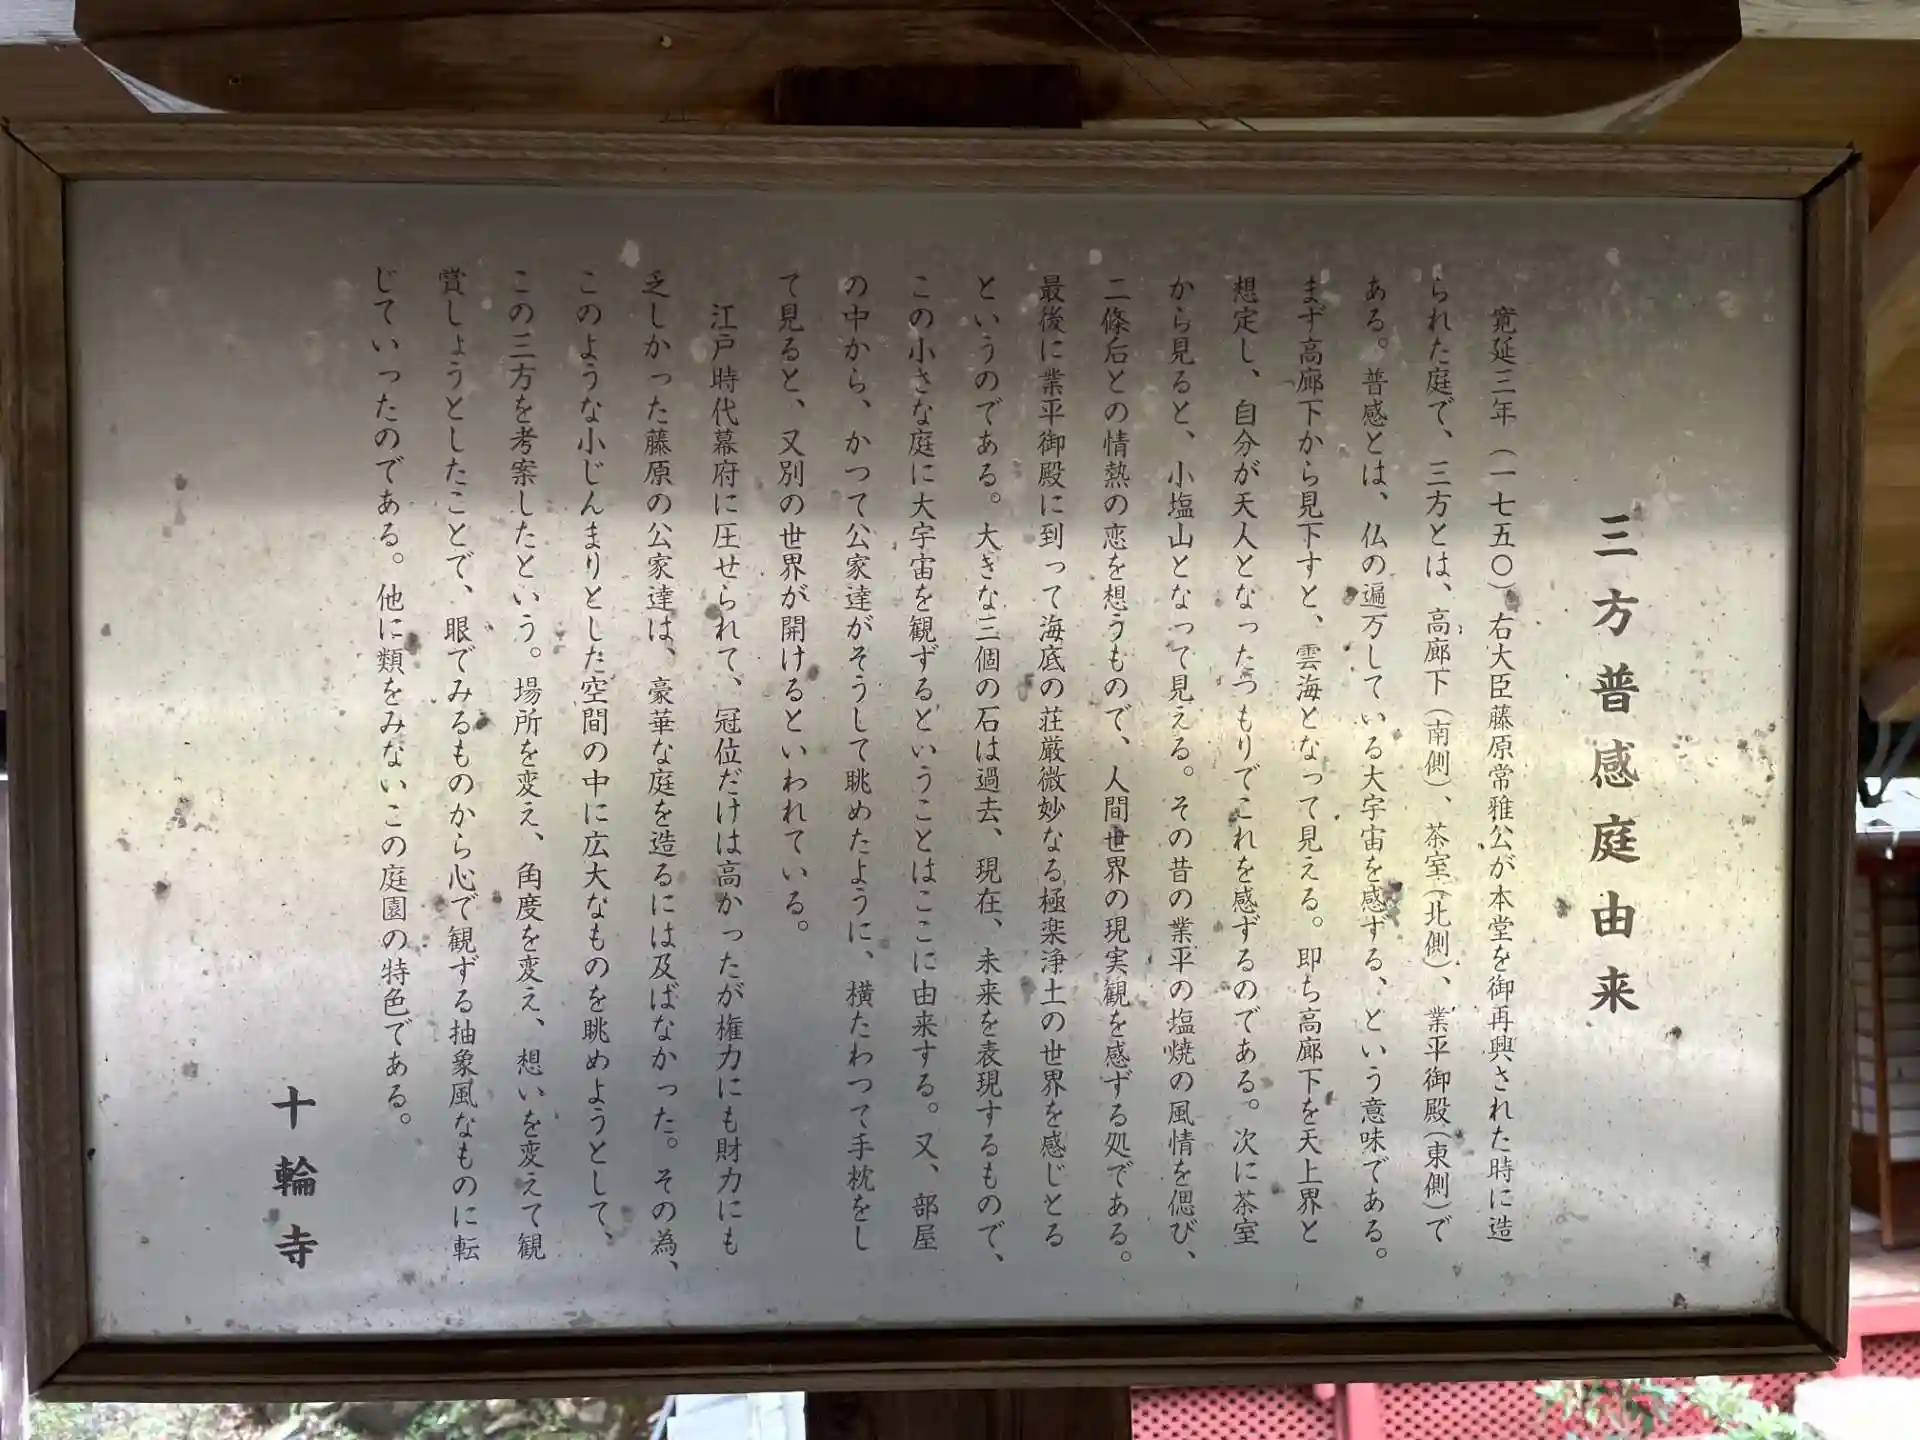 三方普感庭由来
寛延三年（一七五〇）右大臣藤原常雅公が本堂を御再興された時に造
られた庭で、三方とは、高廊下（南側）、茶室（北側）、業平御殿（東側）で
ある。普感とは、仏の遍万している大宇宙を感ずる、という意味である。
まず高廊下から見下すと、雲海となって見える。即ち高廊下を天上界と
想定し、自分が天人となったつもりでこれを感ずるのである。次に茶室
から見ると、小塩山となって見える。その昔の業平の塩焼の風情を偲び、
二條后との情熱の恋を想うもので、人間世界の現実観を感ずる処である。
最後に業平御殿に到って海底の荘厳微妙なる極楽浄土の世界を感じとる
というのである。大きな三個の石は過去、現在、未来を表現するもので、
この小さな庭に大宇宙を観ずるということはここに由来する。又、部屋
の中から、かつて公家達がそうして眺めたように、横たわって手枕をし
て見ると、又別の世界が開けるといわれている。
江戸時代幕府に圧せられて、冠位だけは高かったが権力にも財力にも
乏しかった藤原の公家達は、豪華な庭を造るには及ばなかった。その為、
このような小じんまりとした空間の中に広大なものを眺めようとして、
この三方を考案したという。場所を変え、角度を変え、想いを変えて観
賞しようとしたことで、眼でみるものから心で観ずる抽象風なものに転
じていったのである。他に類をみないこの庭園の特色である。
十輪寺